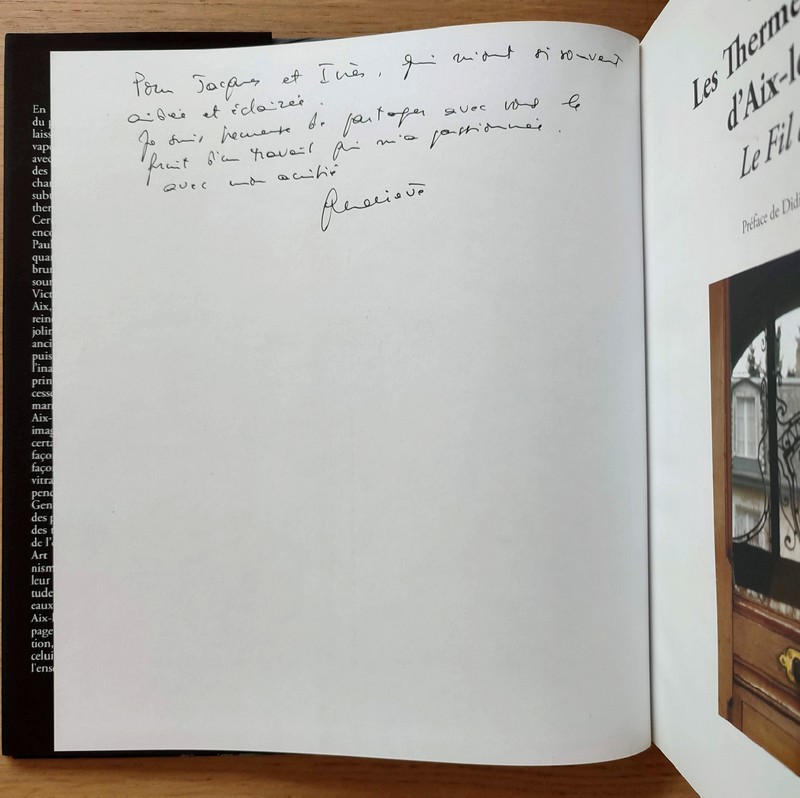 Pour Jacques et Inès, qui m'ont si souvent
aidée et éclairée.
Je suis heureuse de partager avec vous le
fruit d'un travail qui m'a passionnée.
avec mon amitié
Geneviève
Les Therme
d'Aix-le
Le Fil
Préface de Didi
En
du p
laiss
vape
avec
des
char
subt
ther
Cer
enco
Paul
quar
brun
sour
Vict
Aix,
rein
jolin
anci
puis
l'ina
prin
cesse
mar
Aix-
imag
certa
faço
faço
vitra
pend
Gen
des p
des t
de l'é
Art
nism
leur
tude
eaux
Aix-l
page
tion,
celui
l'ens